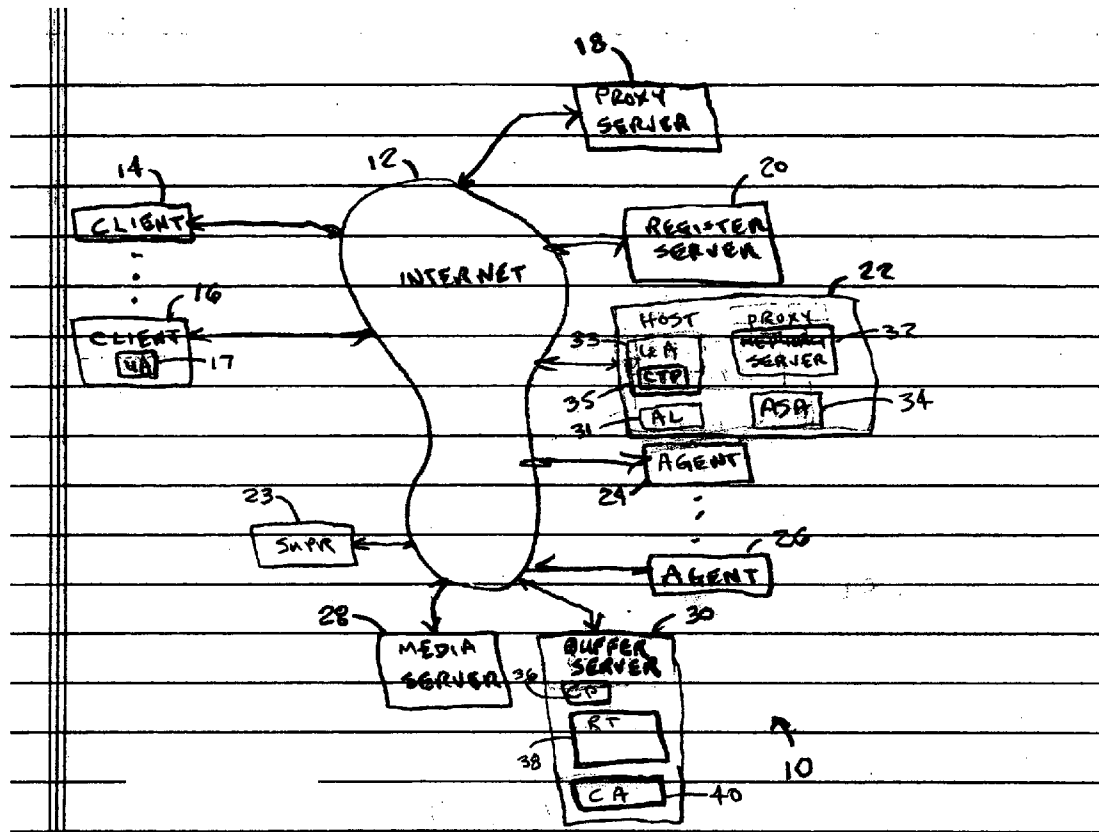 18
PROXY
SERVER
12
14
CLIENT
20
REGISTER
SERVER
INTERNET
16
CLIENT
UA
17
22
HOST
PROXY
33
UA
SERVER
32
CTP
35
AL
31
ASA
34
AGENT
24
23
SUPR
26
AGENT
28
MEDIA
SERVER
30
BUFFER
SERVER
36
CP
RT
38
CA
40
10